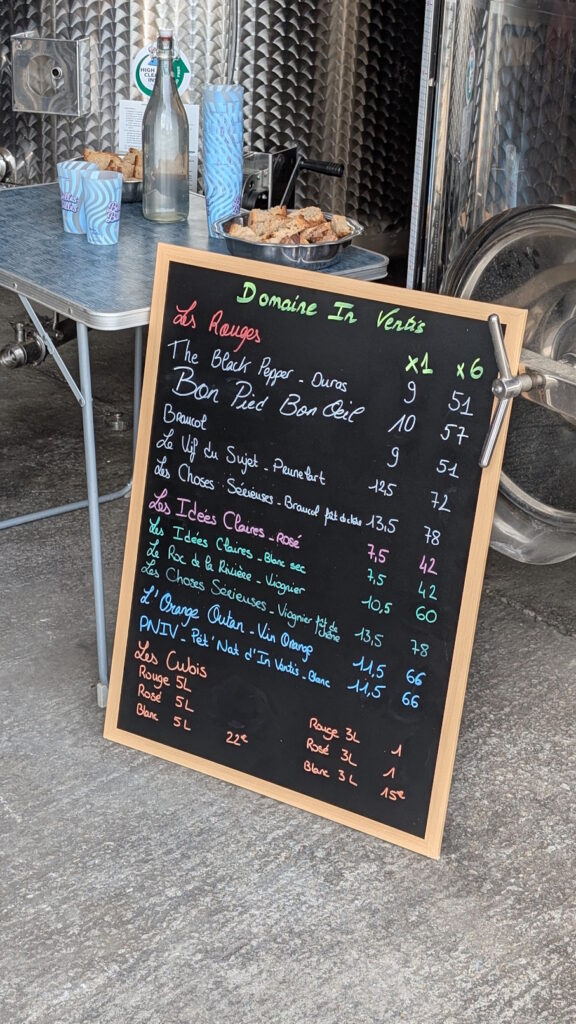 Domaine In Ventis
Les Rouges x1 x6
The Black Pepper - Duras 9 51
Bon Pied Bon Œil 10 57
Braucol 9 51
Le Vif du Sujet - Prunelart 12,5 72
Les Choses Sérieuses - Braucol fût de chêne 13,5 78
Les Idées Claires - Rosé 7,5 42
Les Idées Claires - Blanc sec 7,5 42
Le Roc de la Rivière - Viognier 10,5 60
Les Choses Sérieuses - Viognier fût de chêne 13,5 78
L'Orange Outan - Vin Orange 11,5 66
PNIV - Pét'Nat d'In Ventis - Blanc 11,5 66
Les Cubis
Rouge 5L Rouge 3L 1
Rosé 5L Rosé 3L 1
Blanc 5L 22€ Blanc 3L 15€